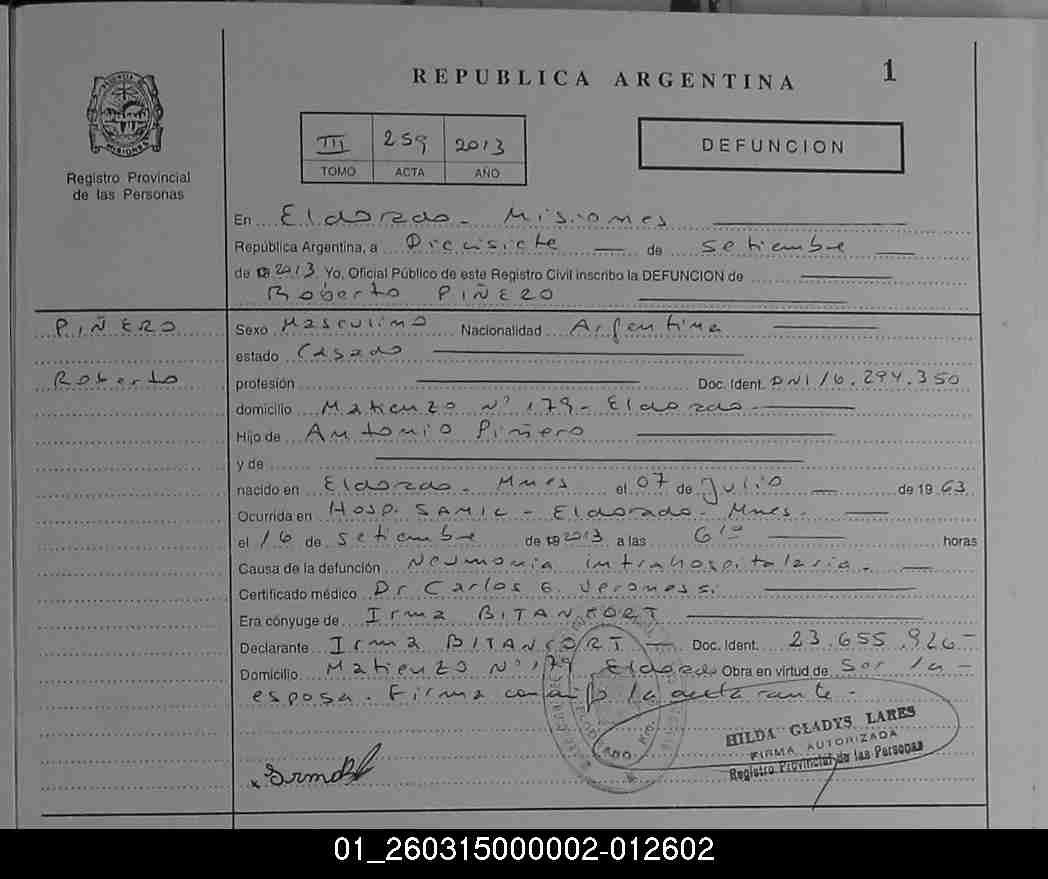 1
REPUBLICA ARGENTINA
III 259 2013
TOMO ACTA AÑO
DEFUNCION
PROVINCIA DE MISIONES
Registro Provincial
de las Personas
En Eldorado - Misiones
República Argentina, a Diecisiete de setiembre
de 19 2013 Yo, Oficial Público de este Registro Civil inscribo la DEFUNCION de
Roberto PIÑERO
PIÑERO
Roberto
Sexo Masculino Nacionalidad Argentina
estado Casado
profesión Doc. Ident. DNI 16.294.350
domicilio Matienzo N° 179 - Eldorado -
Hijo de Antonio Piñero
y de
nacido en Eldorado - Mnes el 07 de Julio de 1963
Ocurrida en Hosp. SAMIC - Eldorado - Mnes -
el 16 de setiembre de 19 2013 a las 6 10 horas
Causa de la defunción Neumonia intrahospitalaria -
Certificado médico Dr Carlos G. Veronessi
Era cónyuge de Irma BITANCORT
Declarante Irma BITANCORT Doc. Ident. 23.655.926 -
Domicilio Matienzo N° 179 Eldorado Obra en virtud de Ser la -
esposa - Firma la -
HILDA GLADYS LARES
FIRMA AUTORIZADA
Registro Provincial de las Personas
01_260315000002-012602